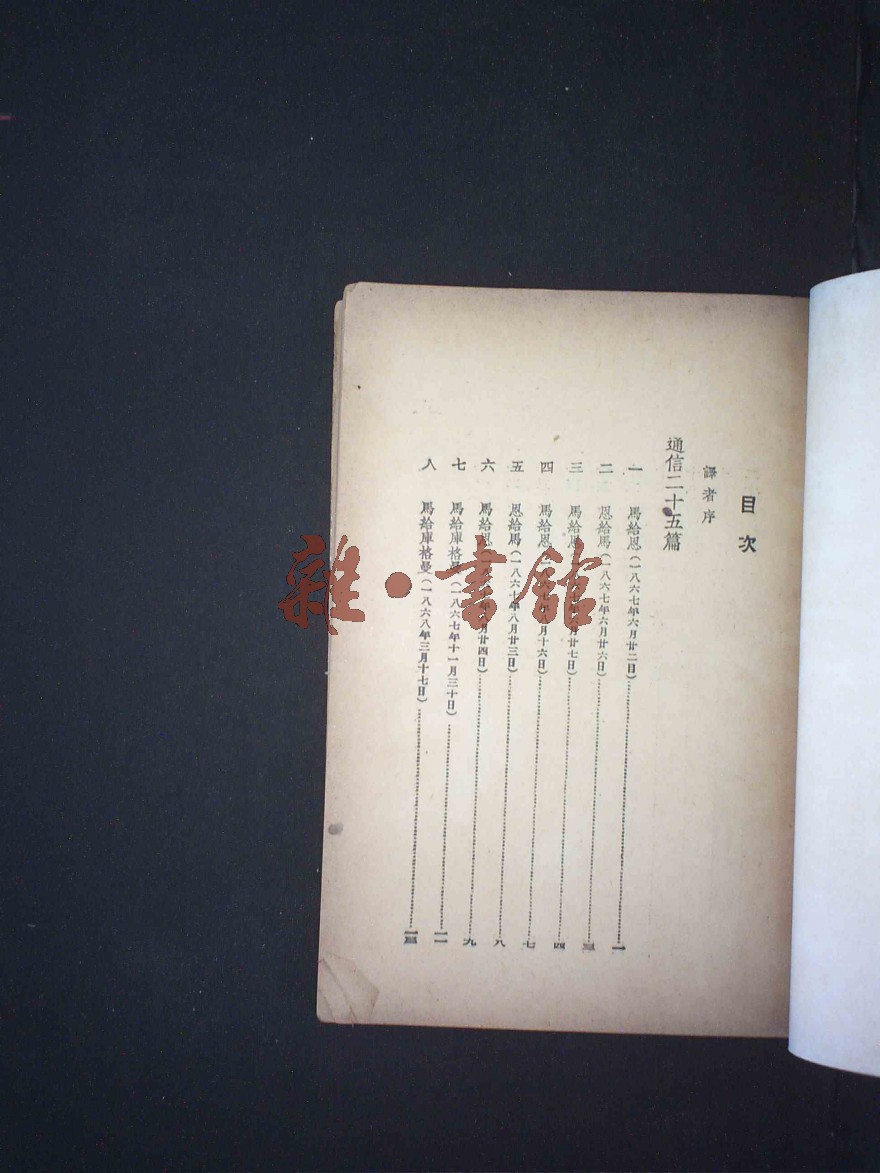 目次
譯者序
通信二十五篇
一 馬給恩(一八六七年六月廿二日) 一
二 恩給馬(一八六七年六月廿六日) 三
三 馬給恩(一八六七年六月廿七日) 四
四 馬給恩 年八月十六日) 七
五 恩給馬(一八六七年八月廿三日) 八
六 馬給恩(一八六七年八月廿四日) 九
七 馬給庫格曼(一八六七年十一月三十日) 一一
八 馬給庫格曼(一八六八年三月十七日) 一三
雜·書館